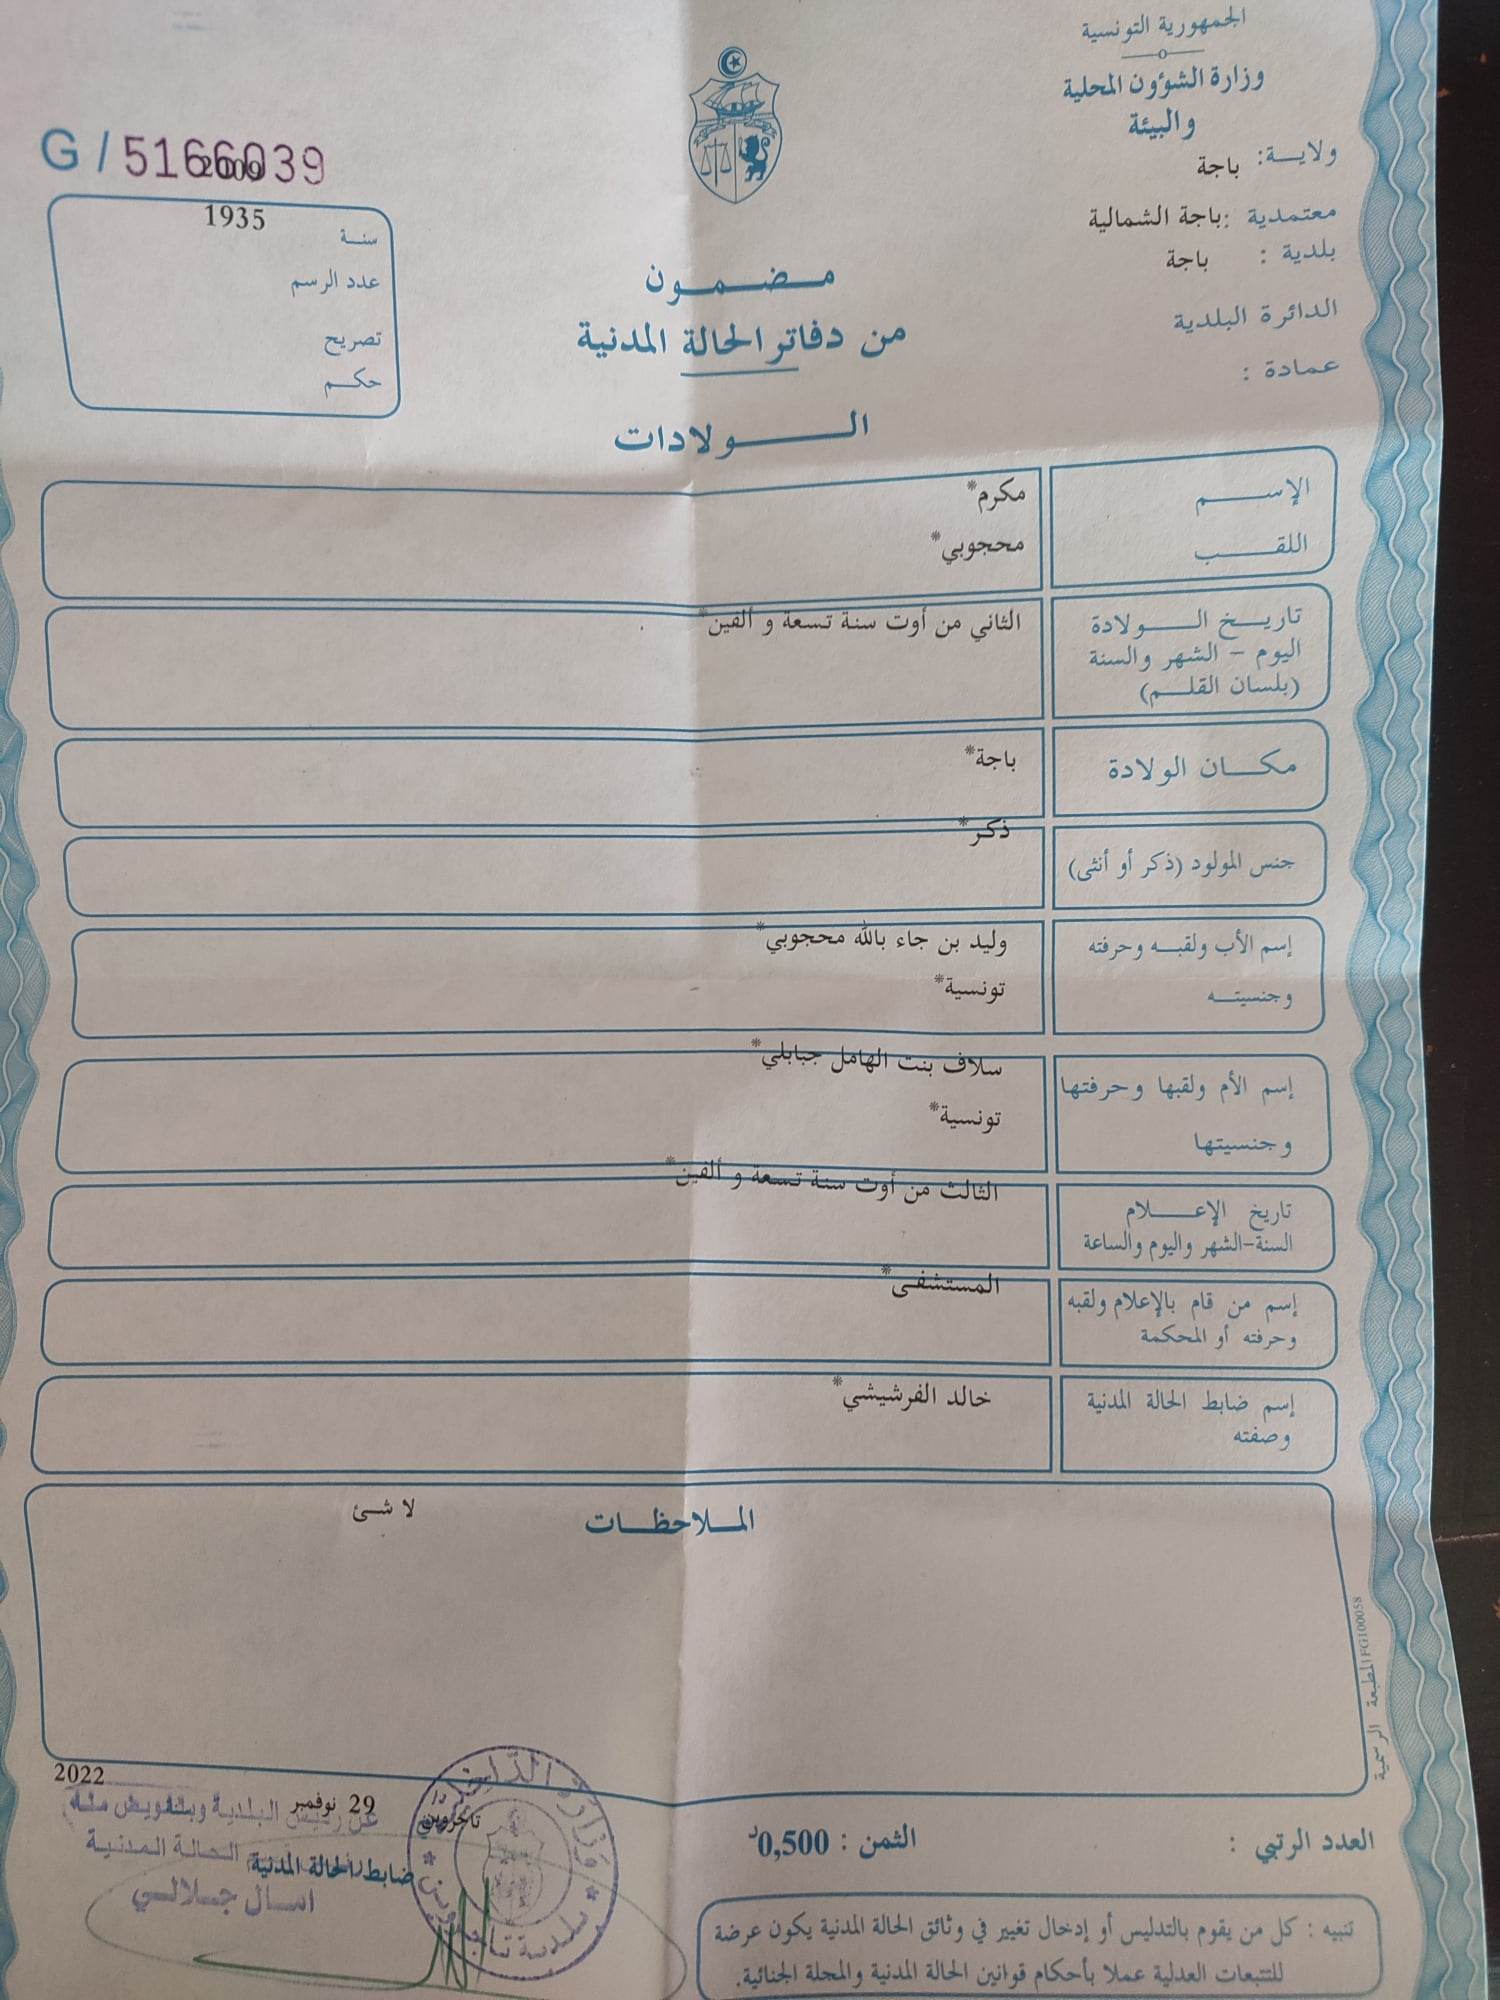 الجمهورية التونسية
وزارة الشؤون المحلية
والبيئة
ولايـة: باجة
معتمدية : باجة الشمالية
بلدية : باجة
الدائرة البلدية
عمادة :
G / 5166039
2009
سنـة
1935
عدد الرسم
تصريح
حكـم
مـضـمـون
من دفاتر الحالة المدنية
الـولادات
الإسـم
مكرم*
اللقـب
محجوبي*
تاريـخ الـولادة
اليوم - الشهر والسنة
(بلسان القلـم)
الثاني من أوت سنة تسعة و ألفين*
مكـان الولادة
باجة*
جنس المولود (ذكر أو أنثى)
ذكر*
إسم الأب ولقبـه وحرفته
وجنسيتـه
وليد بن جاء بالله محجوبي*
تونسية*
إسم الأم ولقبها وحرفتها
وجنسيتها
سلاف بنت الهامل جبابلي*
تونسية*
تاريخ الإعـلام
السنة-الشهر واليوم والساعة
الثالث من أوت سنة تسعة و ألفين*
إسم من قام بالإعلام ولقبه
وحرفته أو المحكمة
المستشفى*
إسم ضابط الحالة المدنية
وصفته
خالد الفرشيشي*
الملاحظـات
لا شئ
المطبعة الرسمية FG100058
العدد الرتبي :
الثمن : 0,500د
تاجروين
29 نوفمبر
2022
عن رئيس البلدية وبتفويض منه
الحالة المدنية
ضابط الحالة المدنية
جلالي
وزارة الداخلية
بلدية تاجروين
تنبيه : كل من يقوم بالتدليس أو إدخال تغيير في وثائق الحالة المدنية يكون عرضة
للتتبعات العدلية عملا بأحكام قوانين الحالة المدنية والمجلة الجنائية.